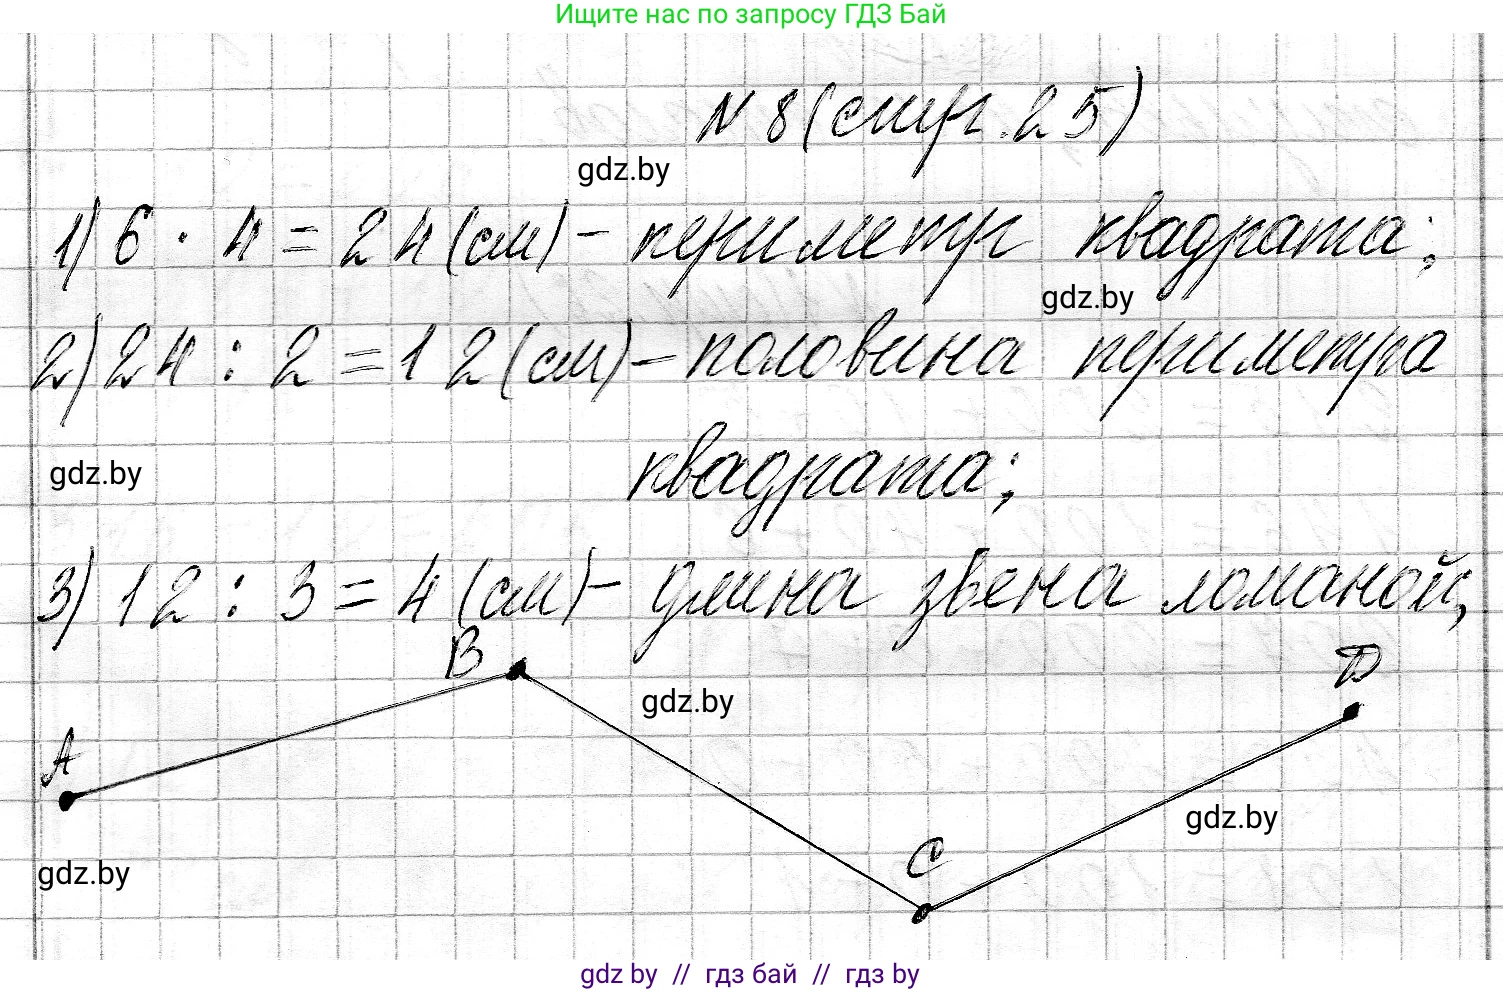 Ищите нас по запросу ГДЗ Бай
N 8 (стр. 25)
gdz.by
1) 6 · 4 = 24 (см) - периметр квадрата;
gdz.by
2) 24 : 2 = 12 (см) - половина периметра
квадрата;
gdz.by
3) 12 : 3 = 4 (см) - длина звена ломаной,
B
gdz.by
D
A
gdz.by
C
gdz.by
gdz by // гдз бай // гдз by